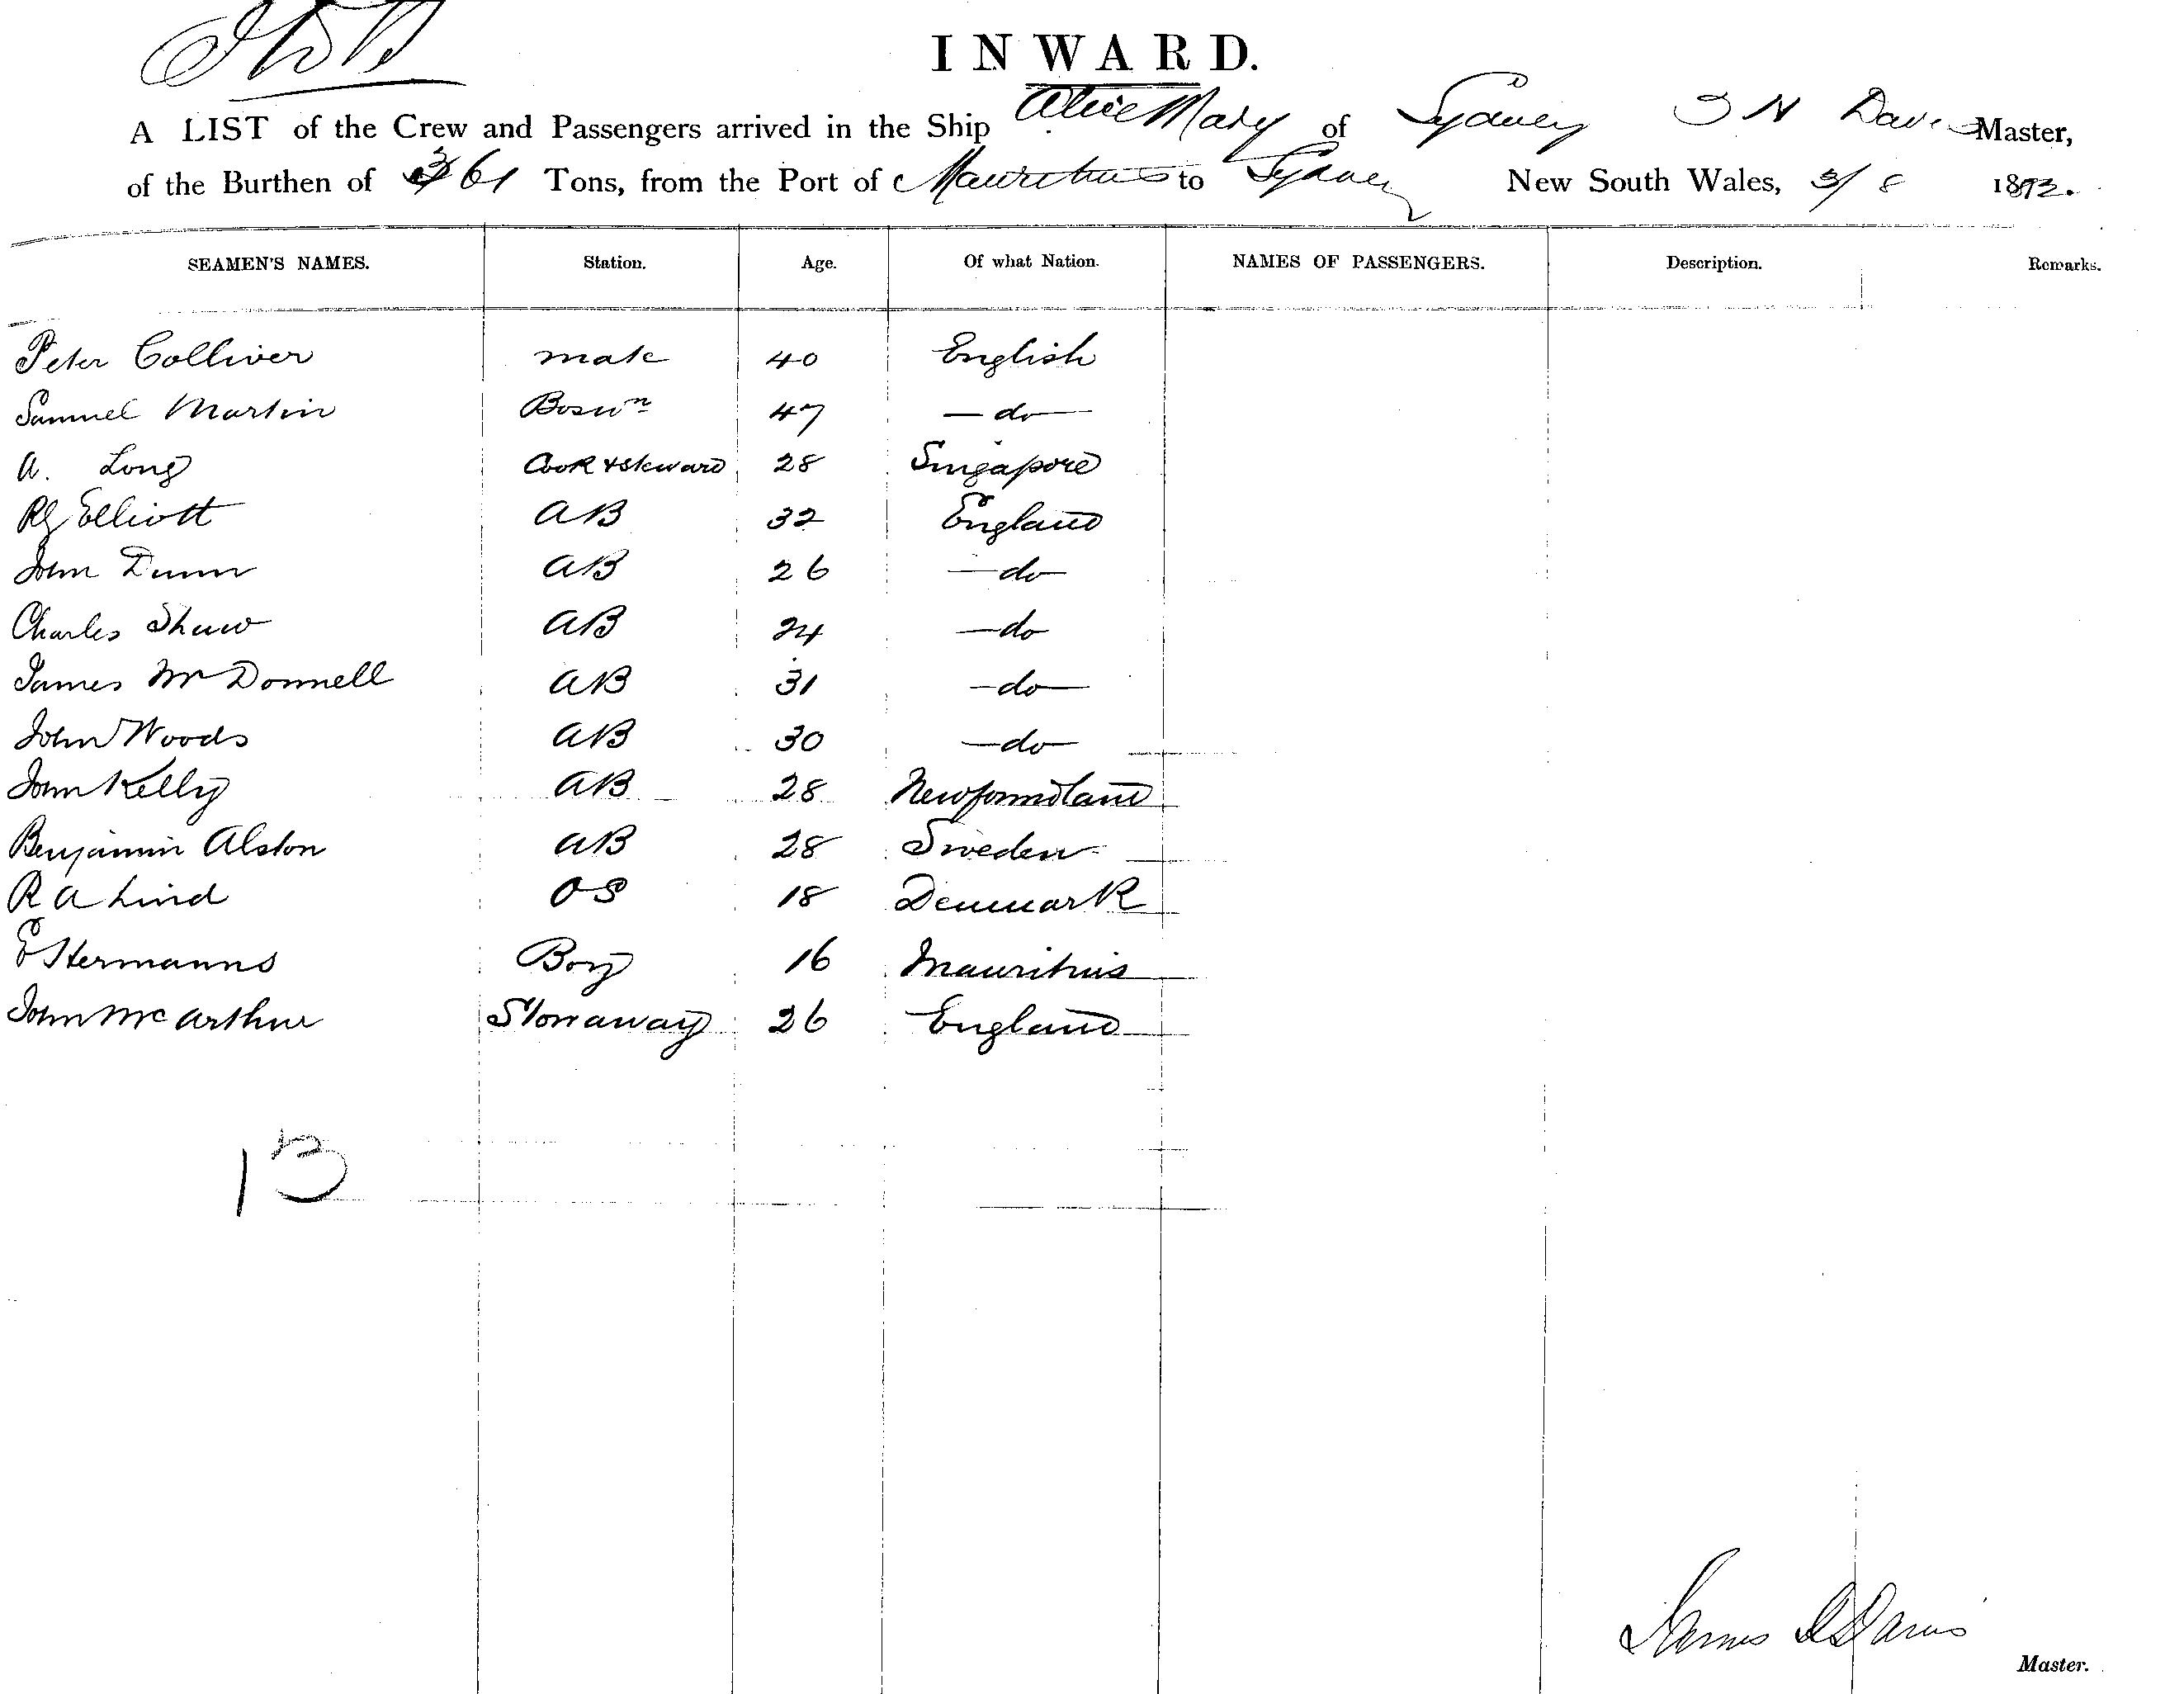 INWARD.
A LIST of the Crew and Passengers arrived in the Ship Alice Mary of Sydney J N Davis Master,
of the Burthen of 361 Tons, from the Port of Mauritius to Sydney New South Wales, 3/8 1872.
SEAMEN'S NAMES. Station. Age. Of what Nation. NAMES OF PASSENGERS. Description. Remarks.
Peter Colliver mate 40 English
Samuel Martin Boswn 47 — do —
A. Long Cook & Steward 28 Singapore
Elliott AB 32 England
John Dunn AB 26 — do
Charles Shaw AB 24 — do
James McDonnell AB 31 — do —
John Woods AB 30 — do —
John Kelly AB 28 Newfoundland
Benjamin Alston AB 28 Sweden
R A Lind OS 18 Denmark
E Hermanns Boy 16 Mauritius
John McArthur Stowaway 26 England
13
James Davis
Master.